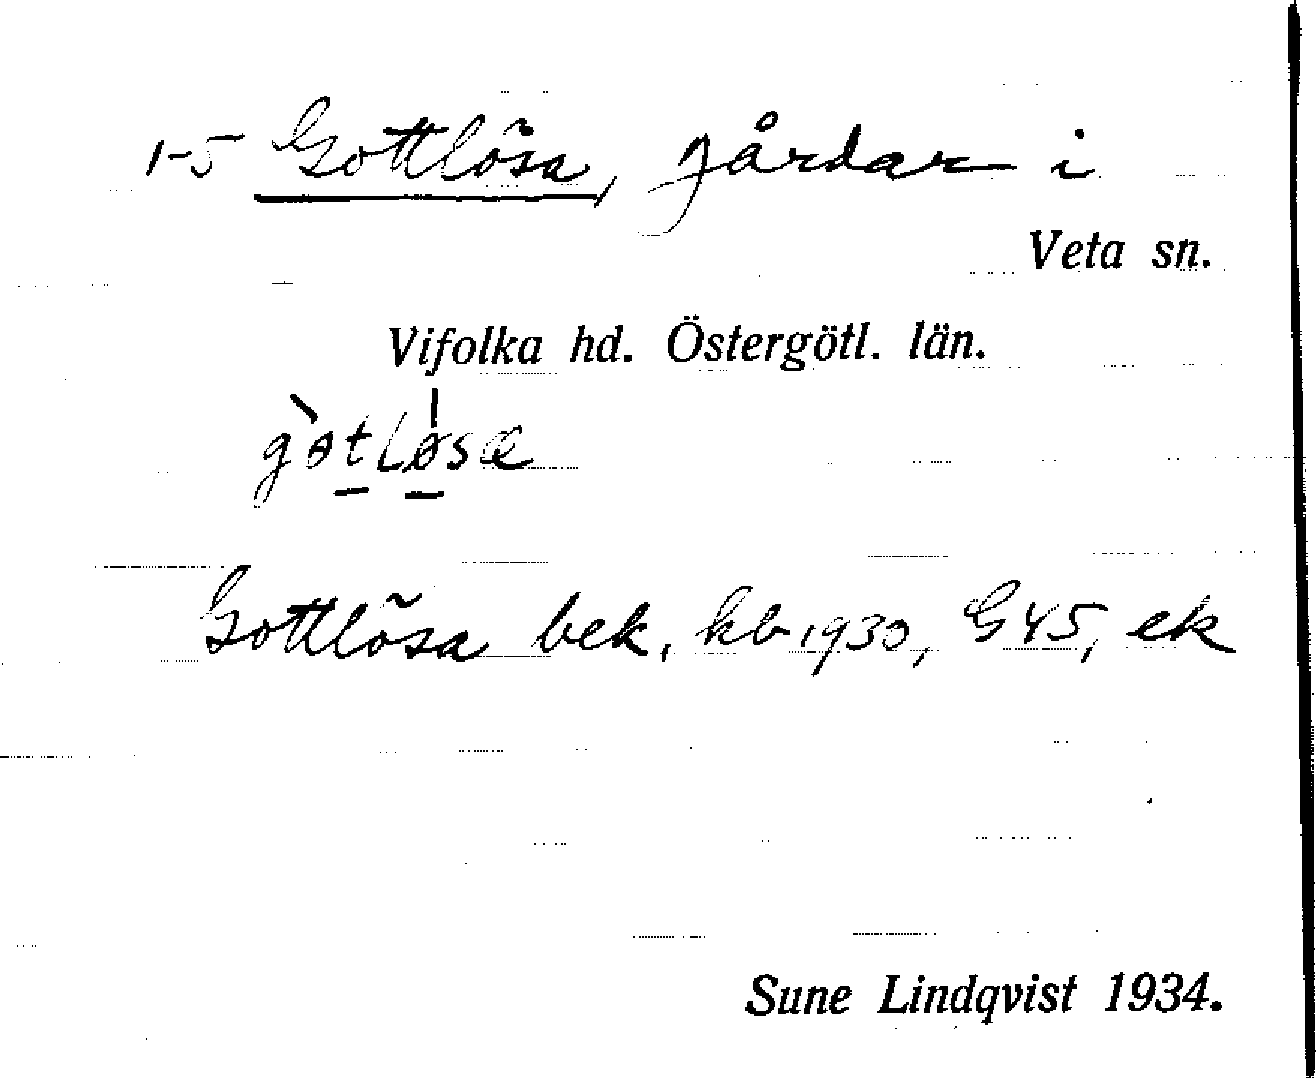 1-5 Gottlösa, gårdar i
Veta sn.
Vifolka hd. Östergötl. län.
Gottlösa bek, kb 1930, G45, ek
Sune Lindqvist 1934.